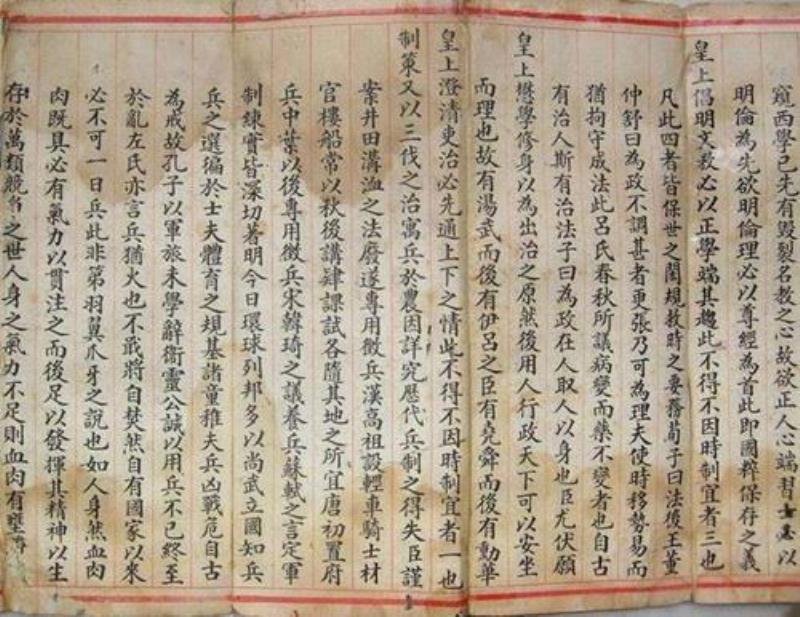 窺西學已先有毀裂名教之心故欲正人心端習士必以
明倫為先欲明倫理必以尊經為首此即國粹保存之義
皇上倡明文教必以正學端其趨此不得不因時制宜者三也
凡此四者皆保世之閎規救時之要務荀子曰法後王董
仲舒曰為政不調甚者更張乃可為理夫使時移勢易而
猶拘守成法此呂氏春秋所譏病變而藥不變者也自古
有治人斯有治法子曰為政在人取人以身也臣尤伏願
皇上懋學修身以為出治之原然後用人行政天下可以安坐
而理也故有湯武而後有伊呂之臣有堯舜而後有勳華
皇上澄清吏治必先通上下之情此不得不因時制宜者一也
制策又以三代之治寓兵於農因詳究歷代兵制之得失臣謹
案井田溝洫之法廢遂專用徵兵漢高祖設輕車騎士材
官樓船常以秋後講肄課試各隨其地之所宜唐初置府
兵中葉以後專用徵兵宋韓琦之議養兵蘇軾之言定軍
制練實皆深切著明今日環球列邦多以尚武立國知兵
兵之選徧於士夫體育之規基諸童稚夫兵凶戰危自古
為戒故孔子以軍旅未學辭衛靈公誠以用兵不已終至
於亂左氏亦言兵猶火也不戢將自焚然自有國家以來
必不可一日兵此非第羽翼爪牙之說也如人身然血肉
肉既具必有氣力以貫注之而後足以發揮其精神以生
存於萬類競爭之世人身之氣力不足則血肉有壅